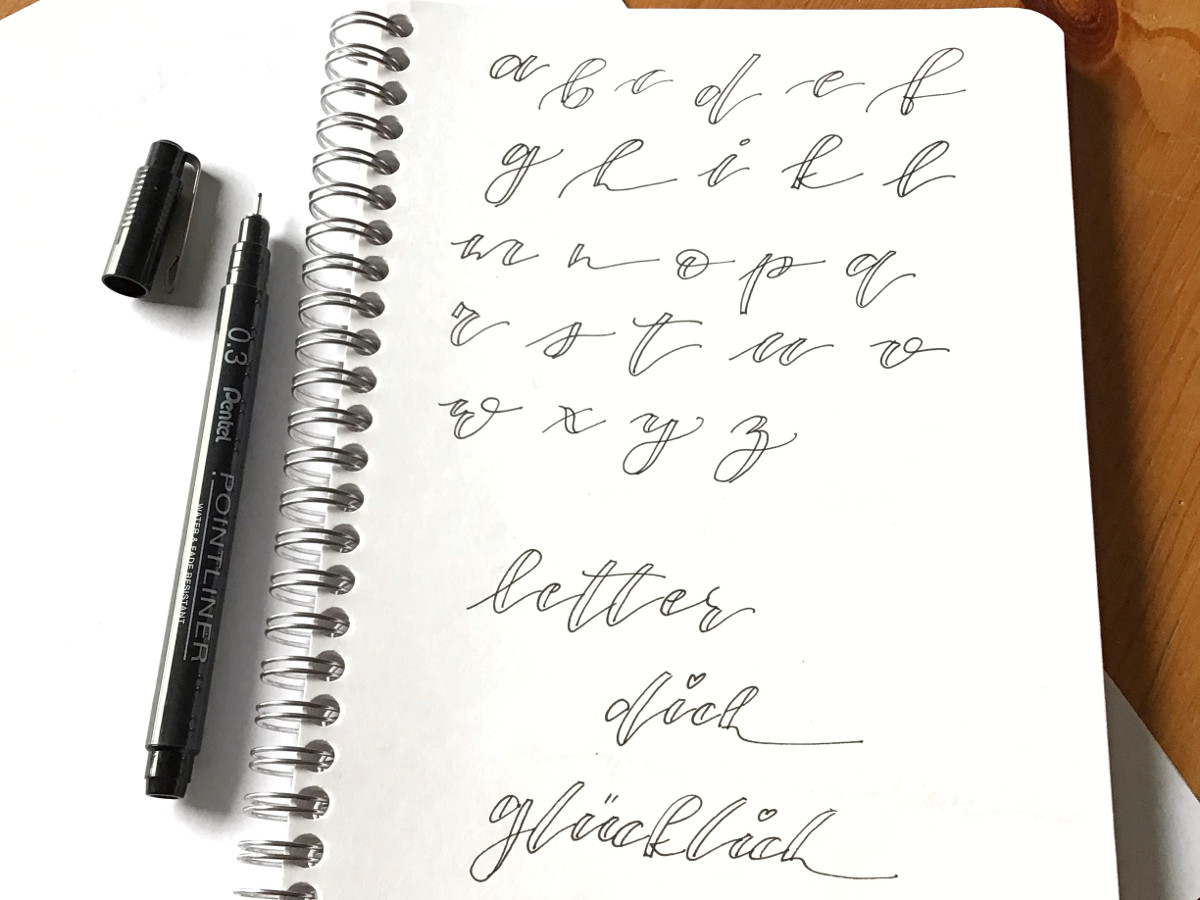 a b c d e f
g h i k l
m n o p q
r s t u v
w x y z
letter
dich
glücklich
0.3 Pentel POINTLINER
WATER & FADE RESISTANT